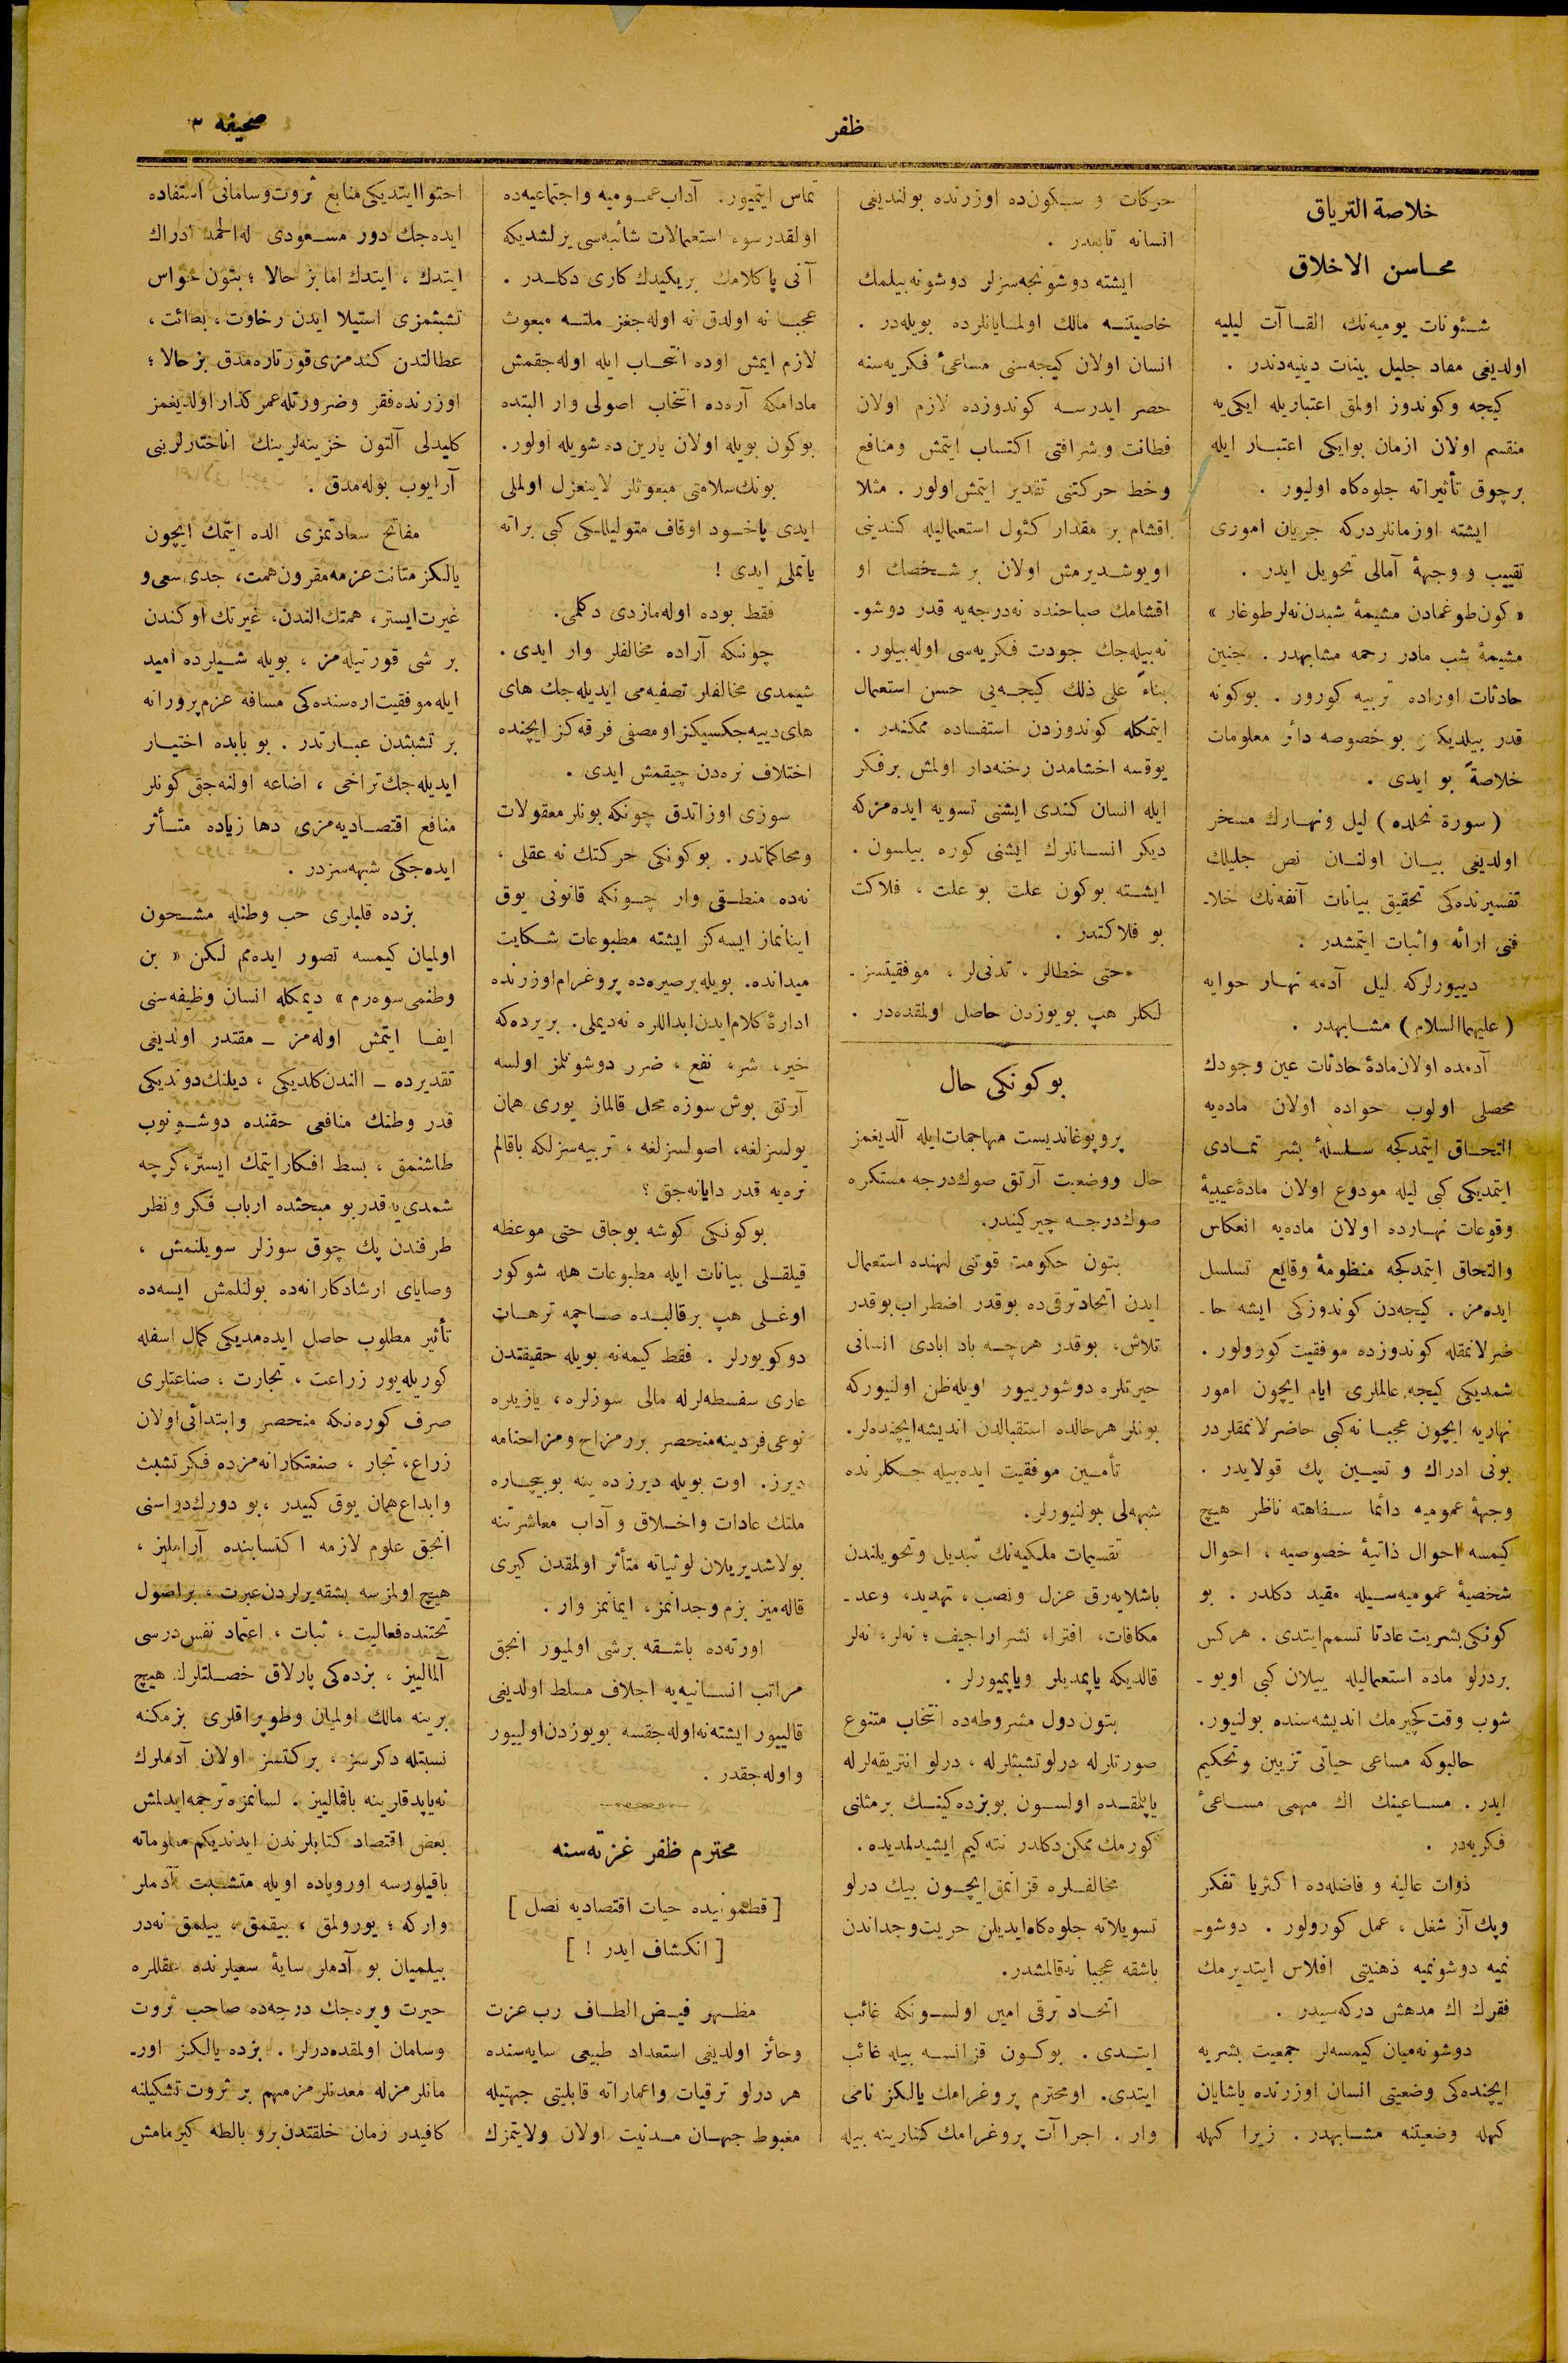 ظفر
صحیفه ٣
خلاصة التریاق
محاسن الاخلاق
شئونات یومیه‌نك القاآت لیلیه
اولدیغی مفاد جلیل بینات دینیه‌دندر .
کیجه وکوندوز اولمق اعتباریله ایکی‌یه
منقسم اولان ازمان بوایکی اعتبار ایله
برچوق تأثیراته جلوه‌کاه اولیور .
ایشته اوزمانلردرکه جریان اموری
تقییب و وجههٔ آمالی تحویل ایدر .
« کون طوغمادن مشیمهٔ شبدن نه‌لر طوغار »
مشیمهٔ شب مادر رحمه مشابهدر . جنین
حادثات اوراده تربیه کورور . بوکونه
قدر بیلدیکز بوخصوصه دائر معلومات
خلاصةً بو ایدی .
( سورهٔ نحلده ) لیل ونهارك مسخر
اولدیغی بیان اولنان نص جلیلك
تفسیرنده‌کی تحقیق بیانات آنفه‌نك خلا-
فنی ارائه واثبات ایتمشدر .
دییورلرکه لیل آدمه نهار حوایه
( علیهماالسلام ) مشابهدر .
آدمده اولان مادهٔ حادثات عین وجودك
محصلی اولوب حواده اولان ماده‌یه
التحاق ایتمدکجه سلسلهٔ بشر تمادی
ایتمدیکی کبی لیله مودوع اولان مادهٔ عیبیهٔ
وقوعات نهارده اولان ماده‌یه انعکاس
والتحاق ایتمدکجه منظومهٔ وقایع تسلسل
ایده‌مز . کیجه‌دن کوندوزکی ایشه حا-
ضرلانمقله کوندوزده موفقیت کورولور .
شمدیکی کیجه عالملری ایام ایچون امور
نهاریه ایچون عجبا نه‌کبی حاضرلانمقلردر
بونی ادراك و تعیین پك قولایدر .
وجههٔ عمومیه دائما سفاهته ناظر هیچ
کیمسه احوال ذاتیهٔ خصوصیه ، احوال
شخصیهٔ عمومیه‌سیله مقید دکلدر . بو
کونکی بشریت عادتا تسمم ایتدی . هرکس
بردرلو ماده استعمالیله ییلان کبی اویو-
شوب وقت کچیرمك اندیشه‌سنده بولنیور.
حالبوکه مساعی حیاتی تزیین وتحکیم
ایدر . مساعینك اك مهمی مساعیٔ
فکریه‌در .
ذوات عالیه و فاضله‌ده اکثریا تفکر
وپك آز شغل ، عمل کورولور . دوشو-
نمیه دوشونمیه ذهنیتی افلاس ایتدیرمك
فقرك اك مدهش درکه‌سیدر .
دوشونه‌میان کیمسه‌لر جمعیت بشریه
ایچنده‌کی وضعیتی انسان اوزرنده یاشایان
کهله وضعیتنه مشابهدر . زیرا کهله
حرکات و سکون‌ده اوزرنده بولندیغی
انسانه تابعدر .
ایشته دوشونجه‌سزلر دوشونه‌بیلمك
خاصیتنه مالك اولمایانلرده بویله‌در .
انسان اولان کیجه‌سنی مساعیٔ فکریه‌سنه
حصر ایدرسه کوندوزده لازم اولان
فطانت وشرافتی اکتساب ایتمش ومنافع
وخط حرکتنی تقدیر ایتمش اولور . مثلا
اقشام بر مقدار کئول استعمالیله کندینی
اویوشدیرمش اولان بر شخصك او
اقشامك صباحنده نه‌درجه‌یه قدر دوشو-
نه‌بیله‌جك جودت فکریه‌سی اوله‌بیلور .
بناءً علی ذلك کیجه‌یی حسن استعمال
ایتمکله کوندوزدن استفاده ممکندر .
یوقسه اخشامدن رخنه‌دار اولمش برفکر
ایله انسان کندی ایشنی تسویه ایده‌مزکه
دیکر انسانلرك ایشنی کوره بیلسون .
ایشته بوکون علت بو علت ، فلاکت
بو فلاکتدر .
حتی خطالر ، تدنی‌لر ، موفقیتسز-
لکلر هپ بویوزدن حاصل اولمقده‌در .
بوکونکی حال
پروپوغاندیست مهاجمات ایله آلدیغمز
حال ووضعیت آرتق صوك درجه مستکره
صوك درجه چیرکیندر.
بتون حکومت قوتنی لهنده استعمال
ایدن اتحادترقی‌ده بوقدر اضطراب بوقدر
تلاش، بوقدر هرچه باد ابادی انسانی
حیرتلره دوشوریور اویله‌ظن اولنیورکه
بونلر هرحالده استقبالدن اندیشه‌ایچنده‌لر.
تأمین موفقیت ایده‌بیله جکلرنده
شبهه‌لی بولنیورلر.
تقسیمات ملکیه‌نك تبدیل وتحویلندن
باشلایه‌رق عزل ونصب، تهدید، وعد-
مکافات، افترا، نشراراجیف؛ نه‌لر، نه‌لر
قالدیکه یاپمدیلر ویاپمیورلر .
بتون دول مشروطه‌ده انتخاب متنوع
صورتلرله درلوتشبثلرله ، درلو انتریقه‌لرله
یاپلمقده اولسون بوبزده‌کینك برمثلنی
کورمك ممکن دکلدر نته‌کیم ایشیدلمدیده.
مخالفلره قزانمق ایچون بیك درلو
تسویلاته جلوه‌کاه‌ایدیلن حریت وجداندن
باشقه عجبا نه‌قالمشدر.
اتحاد ترقی امین اولسونکه غائب
ایتدی . بوکون قزانسه بیله غائب
ایتدی. اومحترم پروغرامك یالکز نامی
وار . اجراآت پروغرامك کنارینه بیله
تماس ایتمیور. آداب عمومیه واجتماعیه‌ده
اولقدر سوء استعمالات شائبه‌سی یرلشدیکه
آنی پاکلامك بریکیدك کاری دکلدر .
عجبا نه اولدق نه اوله‌جغز ملتسه مبعوث
لازم ایمش اوده انتخاب ایله اوله‌جقمش
مادامکه آره‌ده انتخاب اصولی وار البتده
بوکون بویله اولان یارین ده شویله اولور.
بونك سلامتی مبعوثلر لاینعزل اولملی
ایدی یاخود اوقاف متولیلکی کبی براته
یاتملی ایدی !
فقط بوده اوله‌مازدی دکلمی.
چونکه آراده مخالفلر وار ایدی .
شیمدی مخالفلر تصفیه‌می ایدیله‌جك های
های دییه‌جکسیکز اومصفی فرقه‌کز ایچنده
اختلاف نره‌دن چیقمش ایدی .
سوزی اوزاتدق چونکه بونلر معقولات
ومحاکماتدر. بوکونکی حرکتك نه عقلی ،
نه‌ده منطقی وار چونکه قانونی یوق
اینانماز ایسه‌کز ایشته مطبوعات شکایت
میدانده. بویله‌برصیره‌ده پروغرام اوزرنده
ادارهٔ کلام ایدن ابداللره نه‌دیملی. بریرده‌که
خیر، شر، نفع ، ضرر دوشونلمز اولسه
آرتق بوش سوزه محل قالماز یوری همان
یولسزلغه، اصولسزلغه ، تربیه‌سزلکه باقالم
نره‌یه قدر دایانه‌جق ؟
بوکونکی کوشه بوجاق حتی موعظه
قیلقلی بیانات ایله مطبوعات هله شوکور
اوغلی هپ برقالبده صاچمه ترهات
دوکویورلر . فقط کیمه‌نه بویله حقیقتدن
عاری سفسطه‌لرله مالی سوزلره، یازیلره
نوعی فردینه‌منحصر بررمزاح ومزاحنامه
دیرز. اوت بویله دیرزده ینه بوبیچاره
ملتك عادات واخلاق و آداب معاشرتنه
بولاشدیریلان لوثیاته متأثر اولمقدن کیری
قاله‌میز بزم وجدانمز، ایمانمز وار .
اورته‌ده باشقه برشی اولمیور انجق
مراتب انسانیه‌یه اجلاف مسلط اولدیغی
قالییور ایشته‌نه‌اوله‌جقسه بویوزدن اولییور
واوله‌جقدر .
محترم ظفر غزته‌سنه
[ قطمونیده حیات اقتصادیه نصل ]
[ انکشاف ایدر ! ]
مظهر فیض الطاف رب عزت
وحائز اولدیغی استعداد طبیعی سایه‌سنده
هر درلو ترقیات واعماراته قابلیتی جهتیله
مغبوط جهان مدنیت اولان ولایتمزك
احتوا ایتدیکی منابع ثروت وسامانی استفاده
ایده‌جك دور مسعودی له‌الحمد ادراك
ایتدك ، ایتدك اما بز حالا ؛ بتون حواس
تشبثمزی استیلا ایدن رخاوت ، بطائت ،
عطالتدن کندمزی قورتاره‌مدق بزحالا ؛
اوزرنده‌فقر وضرورتله‌عمرکذار اولدیغمز
کلیدلی آلتون خزینه‌لرینك اناختارلرینی
آرایوب بوله‌مدق .
مفاتح سعادتمزی الده ایتمك ایچون
یالکز متانت عزمه مقرون همت، جدی سعی و
غیرت ایستر، همتك الندن، غیرتك اوکندن
بر شی قورتیله‌مز ، بویله شیلرده امید
ایله موفقیت اره‌سنده‌کی مسافه عزم پرورانه
بر تشبثدن عبارتدر . بو بابده اختیار
ایدیله‌جك تراخی ، اضاعه اولنه‌جق کونلر
منافع اقتصادیه‌مزی دها زیاده متأثر
ایده‌جکی شبهه‌سزدر .
بزده قلبلری حب وطنله مشحون
اولمیان کیمسه تصور ایده‌مم لکن « بن
وطنمی سوه‌رم » دیمکله انسان وظیفه‌سنی
ایفا ایتمش اوله‌مز ـ مقتدر اولدیغی
تقدیرده ـ الندن کلدیکی ، دیلنك دوندیکی
قدر وطنك منافعی حقنده دوشونوب
طاشنمق ، بسط افکار ایتمك ایستر، کرچه
شمدی‌یه قدر بو مبحثده ارباب فکر ونظر
طرفندن پك چوق سوزلر سویلنمش ،
وصایای ارشادکارانه‌ده بولنلمش ایسه‌ده
تأثیر مطلوب حاصل ایده‌مدیکی کمال اسفله
کوریله‌یور زراعت ، تجارت ، صناعتلری
صرف کوره‌نکه منحصر وابتدائی اولان
زراع، تجار ، صنعتکارانمزده فکر تشبث
وابداع همان یوق کبیدر ، بو دورك دواسنی
انجق علوم لازمه اکتسابنده آراملیز ،
هیچ اولمزسه بشقه یرلردن عبرت ، براصول
تحتنده فعالیت ، ثبات ، اعتماد نفس درسی
آلمالییز ، بزده‌کی پارلاق خصلتلرك هیچ
برینه مالك اولمیان وطوپراقلری بزمکنه
نسبتله دکرسز ، برکتسز اولان آدملرك
نه‌یاپدقلرینه باقمالییز . لسانمزه ترجمه‌ایدلمش
بعض اقتصاد کتابلرندن ایدندیکم معلوماته
باقیلورسه اوروپاده اویله متشبث آدملر
وارکه ؛ یورولمق ، بیقمق ، ییلمق نه‌در
بیلمیان بو آدملر سایهٔ سعیلرنده عقللره
حیرت ویره‌جك درجه‌ده صاحب ثروت
وسامان اولمقده‌درلر . بزده یالکز اور-
مانلرمزله معدنلرمز مهم بر ثروت تشکیلنه
کافیدر زمان خلقتدن برو بالطه کیرمامش